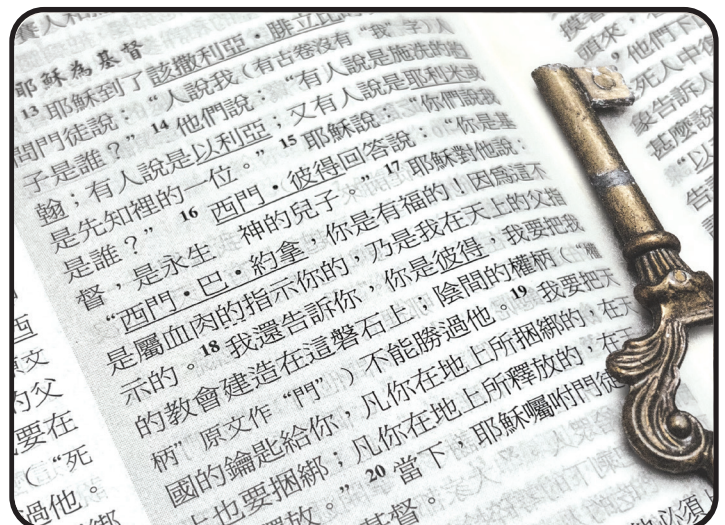 耶穌為基督
13 耶穌到了該撒利亞·腓立比的
問門徒說：“人說我（有古卷沒有“我”字）人
子是誰？” 14 他們說：“有人說是施洗的約
翰；有人說是以利亞；又有人說是耶利米或
是先知裡的一位。” 15 耶穌說：“你們說我
是誰？” 16 西門·彼得回答說：“你是基
督，是永生　神的兒子。” 17 耶穌對他說：
“西門·巴·約拿，你是有福的！因為這不
是屬血肉的指示你的，乃是我在天上的父指
示的。18 我還告訴你，你是彼得，我要把我
的教會建造在這磐石上；陰間的權柄（“權
柄”原文作“門”）不能勝過他。19 我要把天
國的鑰匙給你，凡你在地上所捆綁的，在天
上也要捆綁；凡你在地上所釋放的，在天
釋放。” 20 當下，耶穌囑咐門徒
基督。
西
文
的父
要在
（“死
過他。
綁
頭來，
他們下
死人中
告訴人
甚麼說
“以
告